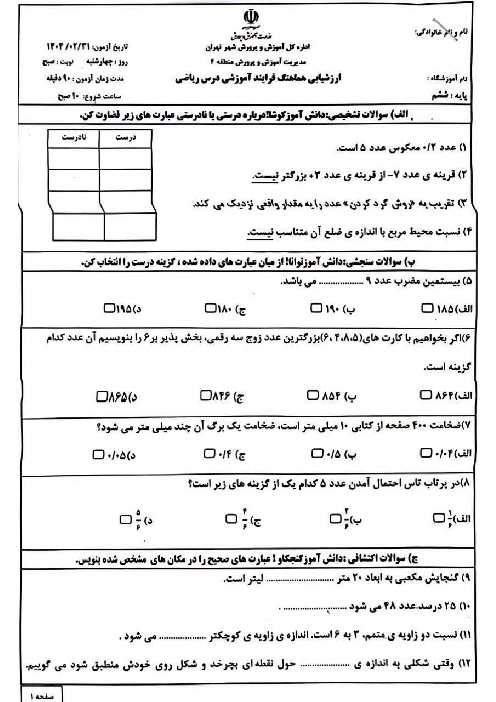 نام و نام خانوادگی:
نام آموزشگاه :
پایه : ششم
اداره کل آموزش و پرورش شهر تهران
مدیریت آموزش و پرورش منطقه ۴
ارزشیابی هماهنگ فرایند آموزشی درس ریاضی
تاریخ آزمون: ۱۴۰۴/۰۲/۳۱
روز : چهارشنبه نوبت : صبح
مدت زمان آزمون: ۹۰ دقیقه
ساعت شروع: ۱۰ صبح
الف) سوالات تشخیصی:دانش آموز کوشا!درباره درستی یا نادرستی عبارت های زیر قضاوت کن.
درست نادرست
۱) عدد ۰/۲ معکوس عدد ۵ است.
۲) قرینه ی عدد ۷- از قرینه ی عدد ۳+ بزرگتر نیست.
۳) تقریب به «روش گرد کردن» عدد را به مقدار واقعی نزدیک می کند.
۴) نسبت محیط مربع با اندازه ی ضلع آن متناسب نیست.
ب) سوالات سنجشی:دانش آموز توانا! از میان عبارت های داده شده ، گزینه درست را انتخاب کن.
۵) بیستمین مضرب عدد ۹ .................. می باشد.
الف) ۱۸۵ ب) ۱۹۰ ج) ۱۸۰ د) ۱۹۵
۶)اگر بخواهیم با کارت های(۶،۴،۸،۵)بزرگترین عدد زوج سه رقمی، بخش پذیر بر ۶ را بنویسیم آن عدد کدام
گزینه است.
الف) ۸۶۴ ب) ۸۵۴ ج) ۸۴۶ د) ۸۶۵
۷)ضخامت ۴۰۰ صفحه از کتابی ۱۰ میلی متر است، ضخامت یک برگ آن چند میلی متر می شود؟
الف) ۰/۰۴ ب) ۰/۵ ج) ۰/۴ د) ۰/۰۵
۸)در پرتاب تاس احتمال آمدن عدد ۵ کدام یک از گزینه های زیر است؟
الف) ۱/۶ ب) ۲/۶ ج) ۴/۶ د) ۵/۶
ج) سوالات اکتشافی :دانش آموز کنجکاو ! عبارت های صحیح را در مکان های مشخص شده بنویس.
۹) گنجایش مکعبی به ابعاد ۲۰ متر .................. لیتر است.
۱۰) ۲۵ درصد عدد ۴۸ می شود .................. .
۱۱) نسبت دو زاویه ی متمم، ۳ به ۶ است. اندازه ی زاویه ی کوچکتر .................. می شود .
۱۲) وقتی شکلی به اندازه ی .................. حول نقطه ای بچرخد و شکل روی خودش منطبق شود می گوییم.
صفحه ۱